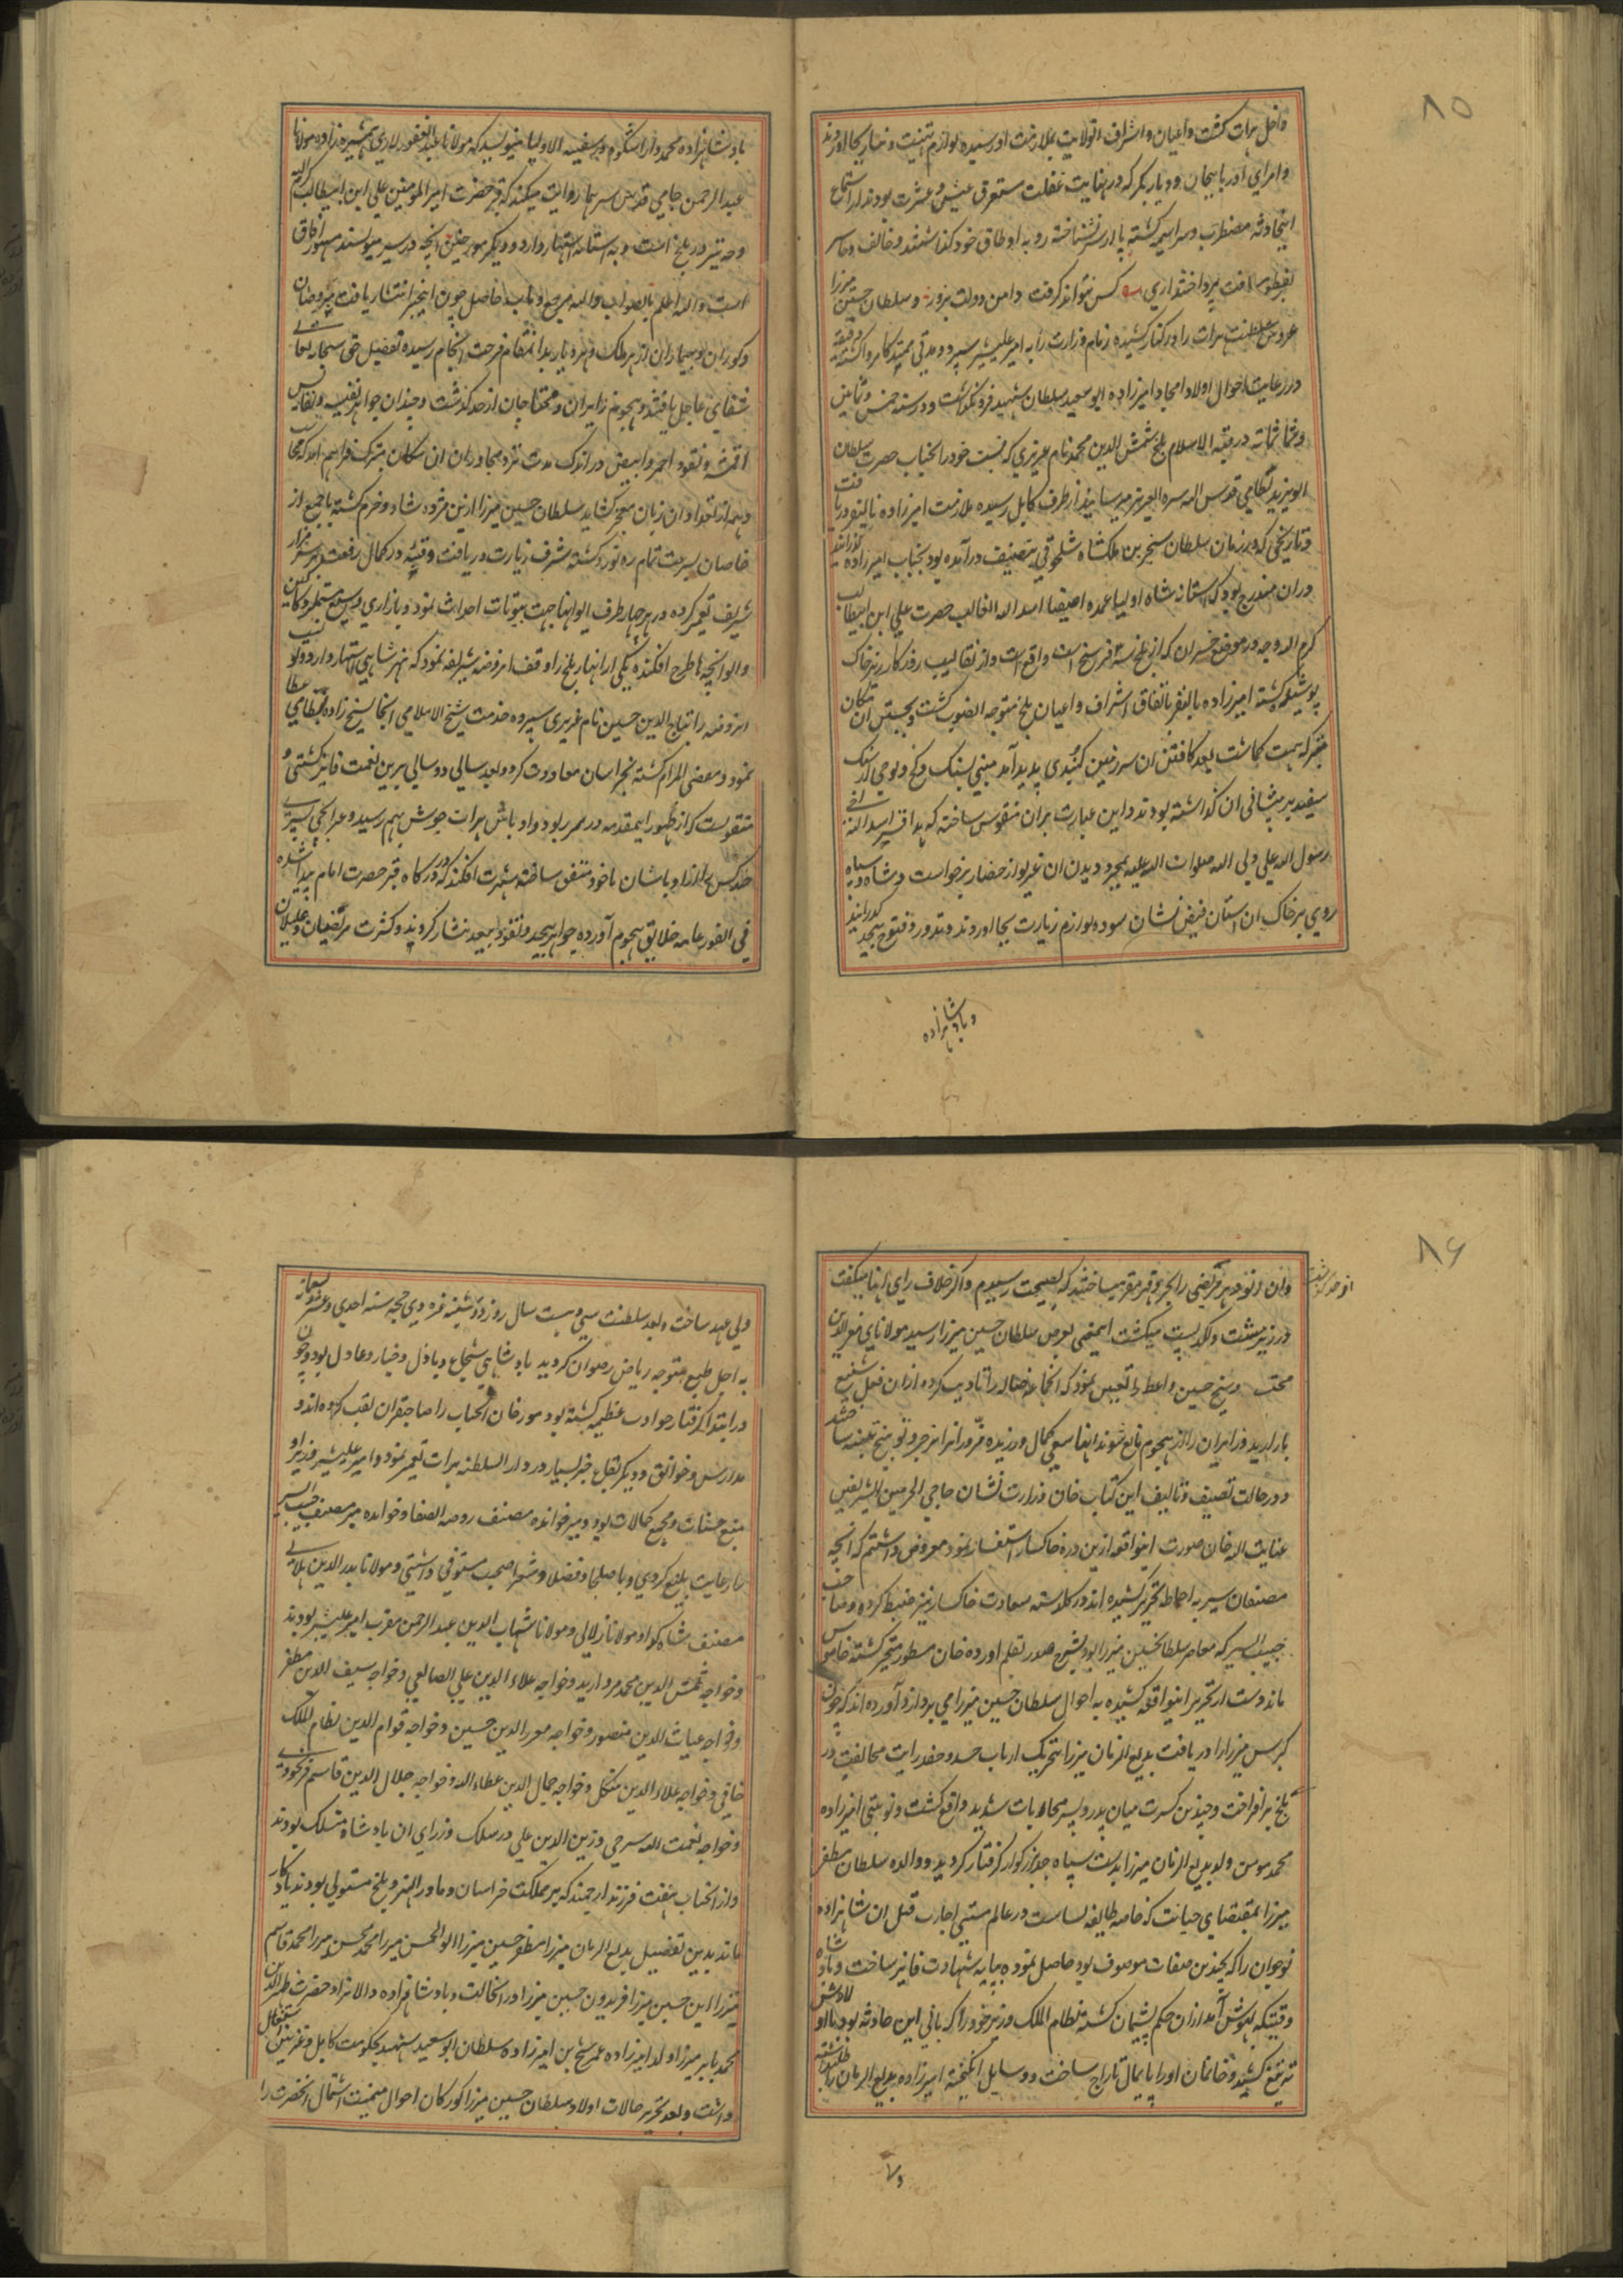 ۸۵
داخل هرات کشت و اعیان و اشراف انولایت بملازمت او رسیده لوازم تهنیت و نیاز بجا اوردند
و امرای آذربایجان و دیار بکر که در نهایت غفلت مستغرق عیش و عشرت بودند از استماع
اینحادثه مضطرب و سراسیمه کشته پا از سر نشناخته رو به اوطاق خود کذاشتند و خائف و خاسر
کس نتواند کرفت دامن دولت بزور و سلطان حسین میرزا
عروس سلطنت هرات را در کنار کشیده زمام وزارت را به امیر علیشیر سپرد و مدتی کامروا کشته دقیقه
در رعایت احوال اولاد امجاد امیرزاده ابو سعید سلطان شهید فرو نکذاشت و در سنه خمس و ثمانین
و ثمانمائه در قبة الاسلام بلخ شمس الدین محمد نام عزیزی که نسبت خود را بجناب حضرت سلطان
ابو یزید بسطامی قدس الله سره العزیز میرسانید از طرف کابل رسیده ملازمت امیرزاده بایقرا دریافت
و تاریخی که در زمان سلطان سنجر بن ملکشاه سلجوقی بتصنیف درآمده بود بجناب امیرزاده کذرانید
در ان مندرج بود که استانه شاه اولیا عمده اصفیا اسد الله الغالب حضرت علی ابن ابیطالب
کرم الله وجه در موضع خیران که از بلخ سه فرسنخ است واقع است و از تقالیب روزکار زیر خاک
پوشیده کشته امیرزاده بایقرا باتفاق اشراف و اعیان بلخ متوجه انصوب کشت و بجستن ان مکان
متبرکه همت کماشت بعد کافتن ان سرزمین کنبدی پدید آمد مبنی بسنک و کچ و لوحی از سنک
سفید بر پیشانی ان کذاشته بودند و این عبارت بران منقوس ساخته که هذا قبر اسد الله اخی
رسول الله علی ولی الله صلوات الله علیه بمجرد دیدن ان غریو از حضار برخواست و شاه و سپاه
روی بر خاک ان استان فیض نشان سوده لوازم زیارت بجا اوردند و نذور و فتوح بیحد کذرانیدند
و بادشاهزاده
بادشاهزاده محمد داراشکوه در سفینه الاولیا مینویسد که مولانا عبد الغفور لاری همشیره زاده مولانا
عبد الرحمن جامی قدس سرهما روایت میکند که قبر حضرت امیر المومنین علی ابن ابیطالب کرم الله
وجه نیز در بلخ است و به استانه اشتهار دارد و دیکر مورخین انچه در سیر مینویسند مشهور افاق
است و الله اعلم بالصواب و الیه مرجع و ماب حاصل چون اینخبر انتشار یافت مریضان
و کوران و بیماران از هر ملک و هر دیار بدانمقام فرحت انجام رسیده بفضل حق سبحانه تعالی
شفای عاجل یافتند و هجوم زایران و محتاجان از حد کذشت و چندان جواهر نفیسه و نفایس
اقمشه و نقود احمر و ابیض در اندک مدت نزد مجاوران ان مکان متبرک فراهم امد که محاسب
وهم از تعداد ان زبان بعجز کشاید سلطان حسین میرزا ازین مژده شاد و خرم کشته با جمیع از
خاصان بسرعت تمام ره نورد کشته شرف زیارت دریافت و قبه در کمال رفعت بر سر مزار
شریف تعمیر کرده در هر چهار طرف ایوانها جهت بیتوتات احداث نمود و بازاری وسیع مشتملبر دکاکین
انروضه را بتاج الدین حسین نام عزیزی سپرده خدمت شیخ الاسلامی انجا بشیخ زاده بسطامی عطا
نمود و مقضی المرام کشته بخراسان معاودت کرد و بعد سالی دوسالی برین نعمت فایز کشتی و
منقولست که از ظهور اینمقدمه در بلخ بود و اوباش هرات جوش بهم رسید
چند کس را از اوباشان با خود متفق ساخته شهرت افکند که در کازر کاه قبر حضرت امام پیدا شده
فی الفور عامه خلایق هجوم آورده جواهر بیحد و نقود بیعد نثار کردند و کثرت مریضان و علیلان
۸۶
وان دنود هر مریضی را بجبر و قهر مقر میساختند که بصحت رسیدیم و اکر خلاف رای انها میکفت
در زیر مشت و لکد پست میکشت اینمعنی بعرض سلطان حسین میرزا رسید مولانای معز الدین
محتسب و شیخ حسین واعظ را تعین نمود که انجماعه ضاله را تادیب کرده از ان فعل شنیع
باز دارید و زایران را از هجوم مانع شوند انها سعی کمال ورزیده مزورانرا بزجر و توبیخ تنبیه ساختند
و در حالت تصنیف و تالیف این کتاب خان وزارت نشان حاجی الحرمین الشریفین
عنایت الله خان صورت اینواقعه ازین ذره خاکسار استفسار نمود معروض داشتم که انچه
مصنفان سیر به احاطه تحریر کشیده اند در کلدسته سعادت خاکسار نیز ضبط کرده و صاحب
حبیب السیر که معاصر سلطانحسین میرزا بود بشرح صدر بقلم اورده خان مسطور متحیر کشته خاموش
ماند و دست از تحریر اینواقعه کشیده به احوال سلطان حسین میرزا می پردازد آورده اند که چون
کبرسن میرزا را دریافت بدیع الزمان میرزا بتحریک ارباب حسد و حقد رایت مخالفت در
بلخ برافراخت و چندین کسرت میان پدر و پسر محاربات شدید واقع کشت و نوبتی امیرزاده
محمد مومن ولد بدیع الزمان میرزا بدست سپاه جد بزرکوار کرفتار کردید و والده سلطان مظفر
میرزا بمقتضای خباثت که خاصه طایفه نساست در عالم مستی اجازت قتل ان شاهزاده
نوجوان را که بچندین صفات موصوف بود حاصل نموده بپایه شهادت فایز ساخت و بادشاه
وقتیکه بهوش آمد از ان حکم پشیمان کشته نظام الملک وزیر خود را که بانی این حادثه بود با اولادش
ته تیغ کشید و خانمان او را پایمال تاراج ساخت و وسایل انکیخته امیرزاده بدیع الزمان را طلبداشته
ولی عهد ساخت و بعد سلطنت سی و بیست سال روز دوشنبه غره ذی حجه سنه احدی و عشر و تسعمائه
به اجل طبع متوجه ریاض رضوان کردید بادشاهی شجاع و باذل و ضیار و عادل بود و چون
در ابتدا کرفتار حوادث عظیمه کشته بود مورخان انجناب را صاحبقران لقب کرده اند و
مدارس و خوانق و دیکر بقاع خیر بسیار در دار السلطنه هرات تعمیر نمود و امیر علیشیر وزیر او
منبع حسنات و مجمع کمالات بود و میر خوانده مصنف روضه الصفا و خوانده میر مصنف حبیب السیر
را رعایت بلیغ کردی و با صلحا و فضلا و شعرا صحبت مستوفی داشتی و مولانا بدر الدین هلالی
مصنف شاه کدا و مولانا زلالی و مولانا شهاب الدین عبد الرحمن مقرب امیر علیشیر بودند
و خواجه شمس الدین محمد مروارید و خواجه علاء الدین علی الصانعی و خواجه سیف الدین مظفر
و خواجه غیاث الدین منصور و خواجه معز الدین حسین و خواجه قوام الدین نظام الملک
خافی و خواجه علاء الدین منکل و خواجه جمال الدین عطاء الله و خواجه جلال الدین قاسم فرنخودی
و خواجه نعمت الله سرخی و زین الدین علی در سلک وزرای ان بادشاه منسلک بودند
و از انجناب هفت فرزند ارجمند که بر مملکت خراسان و ماور النهر و بلخ مستولی بودند یادکار
ماند بدین تفصیل بدیع الزمان میرزا مظفر حسین میرزا ابو الحسن میرزا محمد محسن میرزا محمد قاسم
میرزا ابن حسین میرزا فریدون حسین میرزا در انحالت و بادشاهزاده والانژاد حضرت ظهیر الدین
محمد بابر میرزا ولد امیرزاده عمر شیخ بن امیرزاده سلطان ابو سعید شهید بحکومت کابل و غزنین اشتغال
داشت و بعد تحریر حالات اولاد سلطان حسین میرزا کورکان احوال میمنت اشتمال انحضرت را